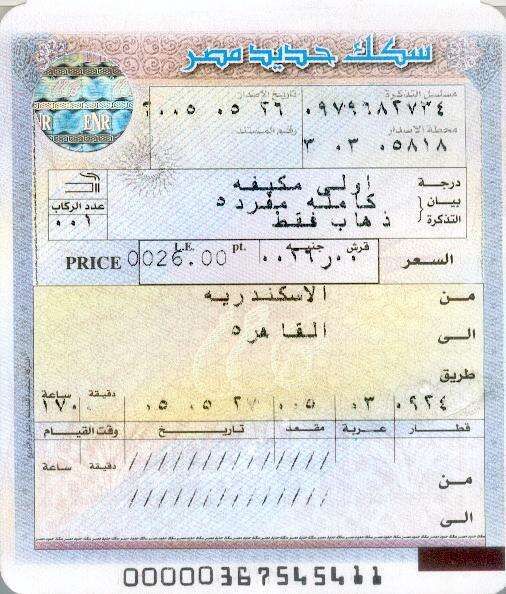 سكك حديد مصر
مسلسل التذكرة تاريخ الاصدار
٠٩٧٩٩٨٢٧٣٤ ٢٠٠٥ ٠٥ ٢٦
محطة الاصدار رقم المستند
٣ ٠٣ ٠٥٨١٨
ENR
درجة اولى مكيفه
بيان التذكرة كامله مفرد٥
ذهاب فقط
عدد الركاب
٠٠١
L.E. pt. جنيه قرش
PRICE 0026.00 ٠٠٢٦ر٠٠ السعر
من الاسكندريه
الى القاهر٥
طريق
دقيقة ساعة
٠٩٣٤ ٠٣ ٠٠٥ ٠٥ ٠٥ ٢٧ ١٧٠
قطار عربة مقعد تاريخ وقت القيام
دقيقة ساعة
من
الى
00000367545411